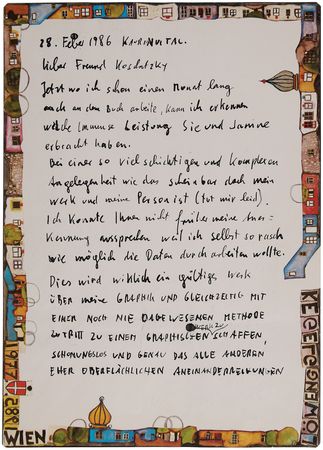 28. Feber 1986 KAURINUITAL.
Lieber Freund Koschatzky
Jetzt wo ich schon einen Monat lang
auch an dem Buch arbeite, kann ich erkennen
welche immense Leistung Sie und Janine
erbracht haben.
Bei einer so vielschichtigen und komplexen
Angelegenheit wie das scheinbar doch mein
Werk und meine Person ist (tut mir leid).
Ich konnte Ihnen nicht früher meine Aner-
kennung aussprechen weil ich selbst so rasch
wie möglich die Daten durcharbeiten wollte.
Dies wird wirklich ein gültiges Werk
ÜBER MEINE GRAPHIK UND GLEICHZEITIG MIT
EINER NOCH NIE DAGEWESENEN METHODE
ZUTRITT ZU EINEM GRAPHISCHEN SCHAFFEN,
SCHONUNGSLOS UND GENAU DAS ALLE ANDEREN
EHER OBERFLÄCHLICHEN ANEINANDERREIHUNGEN
REGENTONFILM
1972
1982
WIEN